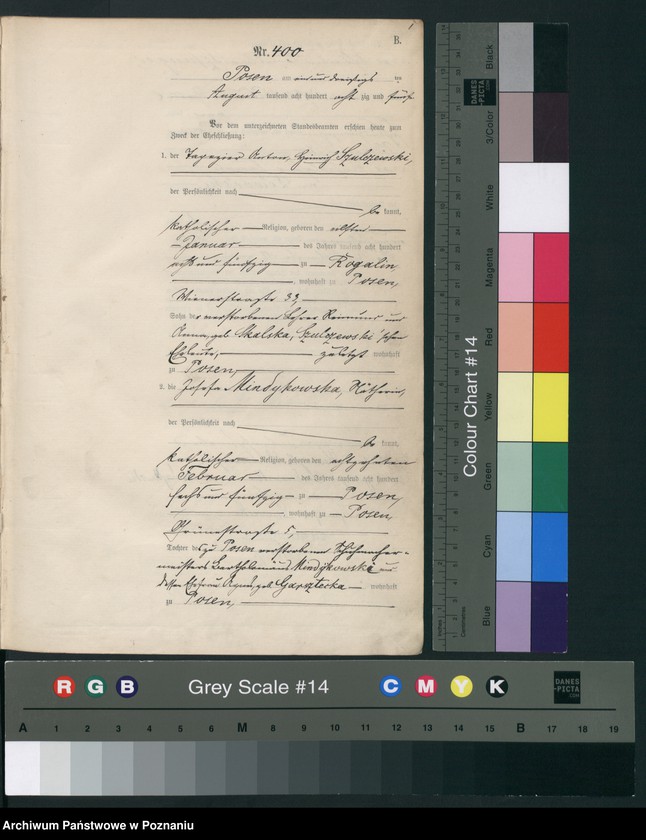 B.
Nr. 400
Posen am ein und dreißigsten
August tausend acht hundert acht zig und fünf
Vor dem unterzeichneten Standesbeamten erschien heute zum
Zweck der Eheschließung:
1. der Tapezier Anton, Heinrich Szulczewski,
der Persönlichkeit nach
be kannt,
katholischer Religion, geboren den elften
Januar des Jahres tausend acht hundert
acht und fünfzig zu Rogalin
, wohnhaft zu Posen,
Wienerstraße 33,
Sohn der verstorbenen Lehrer und
Anna, geb. Skalska, Szulczewski'schen
Eheleute, zuletzt wohnhaft
zu Posen,
2. die Josefa Mindykowska, Nätherin,
der Persönlichkeit nach
be kannt,
katholischer Religion, geboren den achtzehnten
Februar des Jahres tausend acht hundert
sechs und fünfzig zu Posen,
, wohnhaft zu Posen,
Grünestraße 5,
Tochter des zu Posen verstorbenen Schuhmacher-
meisters Bartholomäus Mindykowski und
dessen Ehefrau Agnes, geb. Garsztecka wohnhaft
zu Posen,
Colour Chart #14
Black
3/Color
White
Magenta
Red
Yellow
Green
Cyan
Blue
Inches
Centimetres
DANES
-PICTA
.COM
R G B
Grey Scale #14
C M Y K
DANES
-PICTA
.COM
A 1 2 3 4 5 6 M 8 9 10 11 12 13 14 15 B 17 18 19
Archiwum Państwowe w Poznaniu